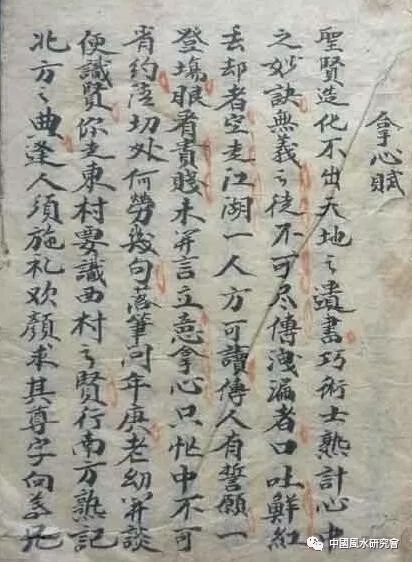 拿心賦
聖賢造化不出天地之遺書巧術士熟計心中
之妙訣無義之徒不可尽傳洩漏者口吐鮮紅
丢却者空走江湖一人方可讀傳人有誓願一
登塲眼看貴賤未开言立意拿心只中不可
省約切处何勞幾句落筆问年庚老幼开談
便識賢你走東村要識西村之賢行南方熟記
北方之曲逢人須施礼欢顔求其尊字向
中國風水研究會